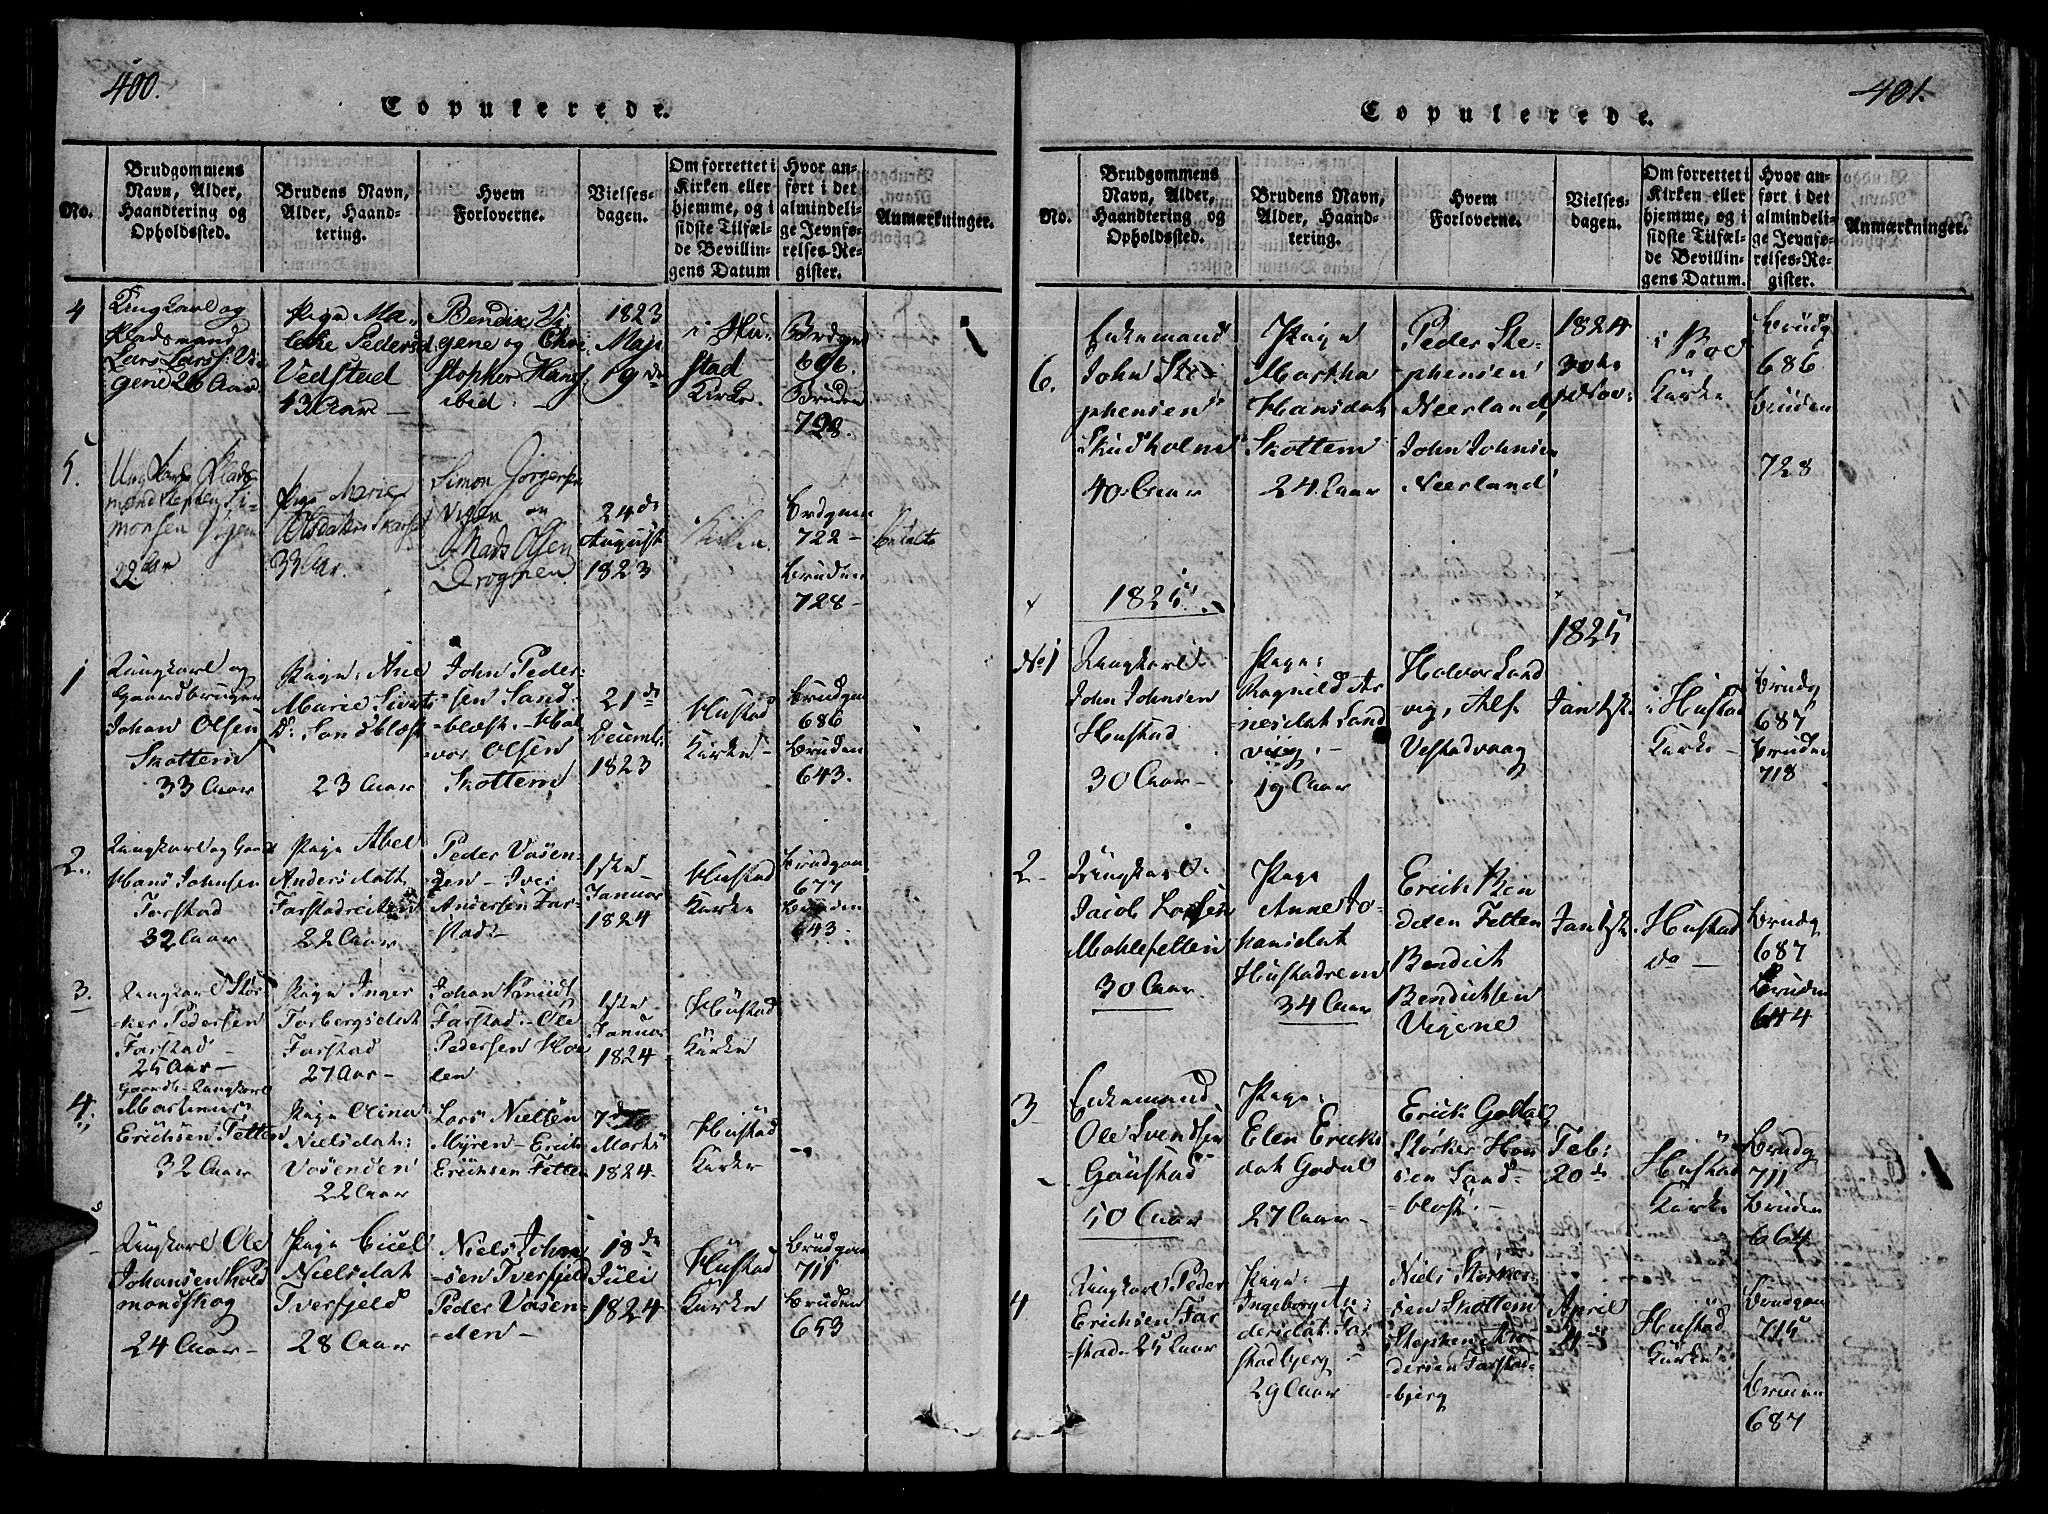 400.
Copulerede.
No.
Brudgommens
Navn, Alder,
Haandtering og
Opholdssted.
Brudens Navn,
Alder, Haand-
tering.
Hvem
Forloverne.
Vielses-
dagen.
Om forrettet i
Kirken eller
hjemme, og i
sidste Tilfæl-
de Bevillin-
gens Datum
Hvor an-
ført i det
almindeli-
ge Jevnfø-
relses-Re-
gister.
Anmærkninger.
4
Ungkarl og
Pladsmand
Lars Larss: Vi-
gene 26 Aar
Pige Ma-
Pedersd
Vedstad
43 Aar
Bendix Vi-
gene og Chri-
stopher Hans
ibid:
1823
Maji
19 de
i Hu-
stad
Kirke.
Brdgm
696.
Bruden
728.
5.
Ungkarl Plads
mand Stephen Si-
monsen Vigen
22 Aar
Pige Marie
Olsdatter
33 Aar.
Simon Jørgensen
Vigen og
Mads Olsen
Drognen
24 de
August
1823
Kirken.
Brdgm
722
Bruden
728
betalt
1
Ungkarl og
Gaardbruger
Johan Olsen
Skottem
33 Aar
Pige: Ane
Marie Siverts
Dr Sandblost
23 Aar
John Peder-
sen Sand-
blost. Hal-
vor Olsen
Skottem
21 de
Decembr
1823
Hustad
Kirke
Brudgm
686
Bruden
643.
2.
Ungkarl og Gaard
Hans Johnsen
Farstad
32 Aar
Pige Abel
Andersdatt
Farstadreiten
22 Aar
Peder Vasen-
den - Iver
Andersen Far-
stad
1ste
Januar
1824
Hustad
Kirke
Brudgom
677
Bruden
643.
3.
Ungkarl Stør-
ker Pedersen
Farstad
25 Aar
Pige Inger
Torbergsdat
Farstad
27 Aar
Johan Knudt
Farstad. Ole
Pedersen Hoe
len
1ste
Januar
1824
Hustad
Kirke
4.
Gaardb. Ungkarl
Martinus
Erichsen Fetten
32 Aar
Pige Olina
Nielsdat:
Vasenden
22 Aar
Lars Nielsen
Myren - Erich
Erichsen Fetten
7 de
Marts
1824
Hustad
Kirke
Ungkarl Ole
Johansen Kold
mondskog
24 Aar
Pige Cicel
Nielsdat
Tverfjeld
28 Aar
Niels John
sen Tverfjeld
Peder Vasen-
den
18 de
Juli
1824
Hustad
Kirke
Brudgom
711
Bruden
653
401.
Copulerede.
No.
Brudgommens
Navn, Alder,
Haandtering og
Opholdssted.
Brudens Navn,
Alder, Haand-
tering.
Hvem
Forloverne.
Vielses-
dagen.
Om forrettet i
Kirken eller
hjemme, og i
sidste Tilfæl-
de Bevillin-
gens Datum.
Hvor an-
ført i det
almindeli-
ge Jevnfø-
relses-Re-
gister.
Anmærkninger.
6.
Enkemand
John Ste-
phensen
Skudholm
40 Aar
Pige
Martha
Hansdat
Skottem
24 Aar
Peder Ste-
phensen
Neerland
John Johnsen
Neerland
1824
30te
Nov:
i Boe
Kirke
Brudg
686
Bruden
728
1825.
1825
No 1
Ungkarl
John Johnsen
Hustad
30 Aar
Pige:
Ragnild Ar
nesdat Sand
viig.
19 Aar
Halvor Sand
vig, Alf
Vestadvaag
Jan
i Hustad
Kirke
Brudg
687
Bruden
718
2
Ungkarl
Jacob Larsen
Mahlefetten
30 Aar
Pige
Anne Jo-
hansdat
Hustadrem
34 Aar
Erich Ben
dixen Fetten
Bendict
Bendichsen
Vigene
Jan
Hustad
do
Brudg
687
Bruden
644
3
Enkemand
Ole Svendsen
Gaustad
50 Aar
Pige:
Elen Erichs
dat Godal
27 Aar
Erick Godal,
Størker Han
sen Sand-
blost.
Feb:
20 de
Hustad
Kirke
Brudg
711
Bruden
664.
4
Ungkarl Peder
Erichsen Far
stad 25 Aar
Pige:
Ingeborg An:
dersdat. Far
stadbjerg
29 Aar
Niels Størker-
sen Skottem
Stephen An-
dersen Farstad-
bjerg
April
4 de
Hustad
Kirke
Brudgom
715
Bruden
687